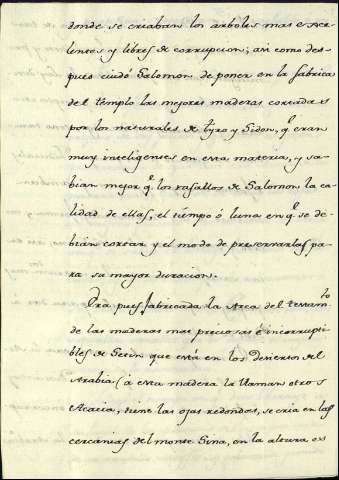 donde se criaban los árboles mas exce
lentes y libres de corrupcion; asi como des
pues cuidó Salomon de poner en la fabrica
del templo las mejores maderas cortadas
por los naturales de tyro y Sidon, q.e eran
muy inteligentes en esta materia, y sa-
bian mejor q.e los vasallos de Salomon la ca
lidad de ellas, el tiempo ó luna en q.e se de-
bian cortar y el modo de preservarlas pa-
ra su mayor duracion.
Era pues fabricada la Arca del testam.to
de las maderas mas preciosas é incorrupti
bles de Setin que está en los Desiertos del
Arabia (á esta madera la llaman otros
Acacia, tiene las ojas redondas, se cria en las
cercanias del monte Sina, en la altura es